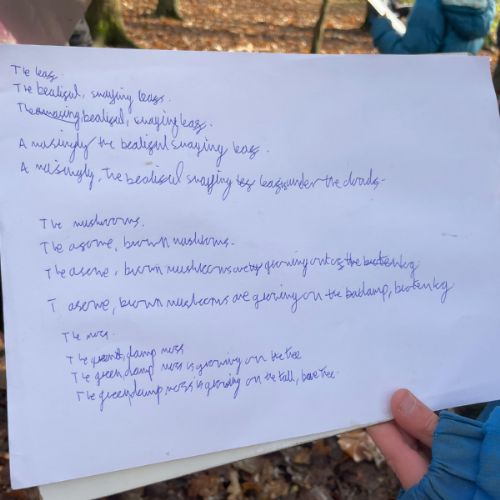 The leas.
The bealisul, swaying leass.
The amasing bealisul, swaying leass.
Amusingly the bealisul swaying leas.
Amusingly, the bealisul swaying leass under the clouds.
The mushrooms.
The asome, brown mushrooms.
The asome, brown mushrooms are growing out os the broken log
T asome, brown mushrooms are growing on the damp, broken log
The moss.
The green, damp moss
The green, damp moss is growing on the tree
The green, damp moss is growing on the tall, bare tree.